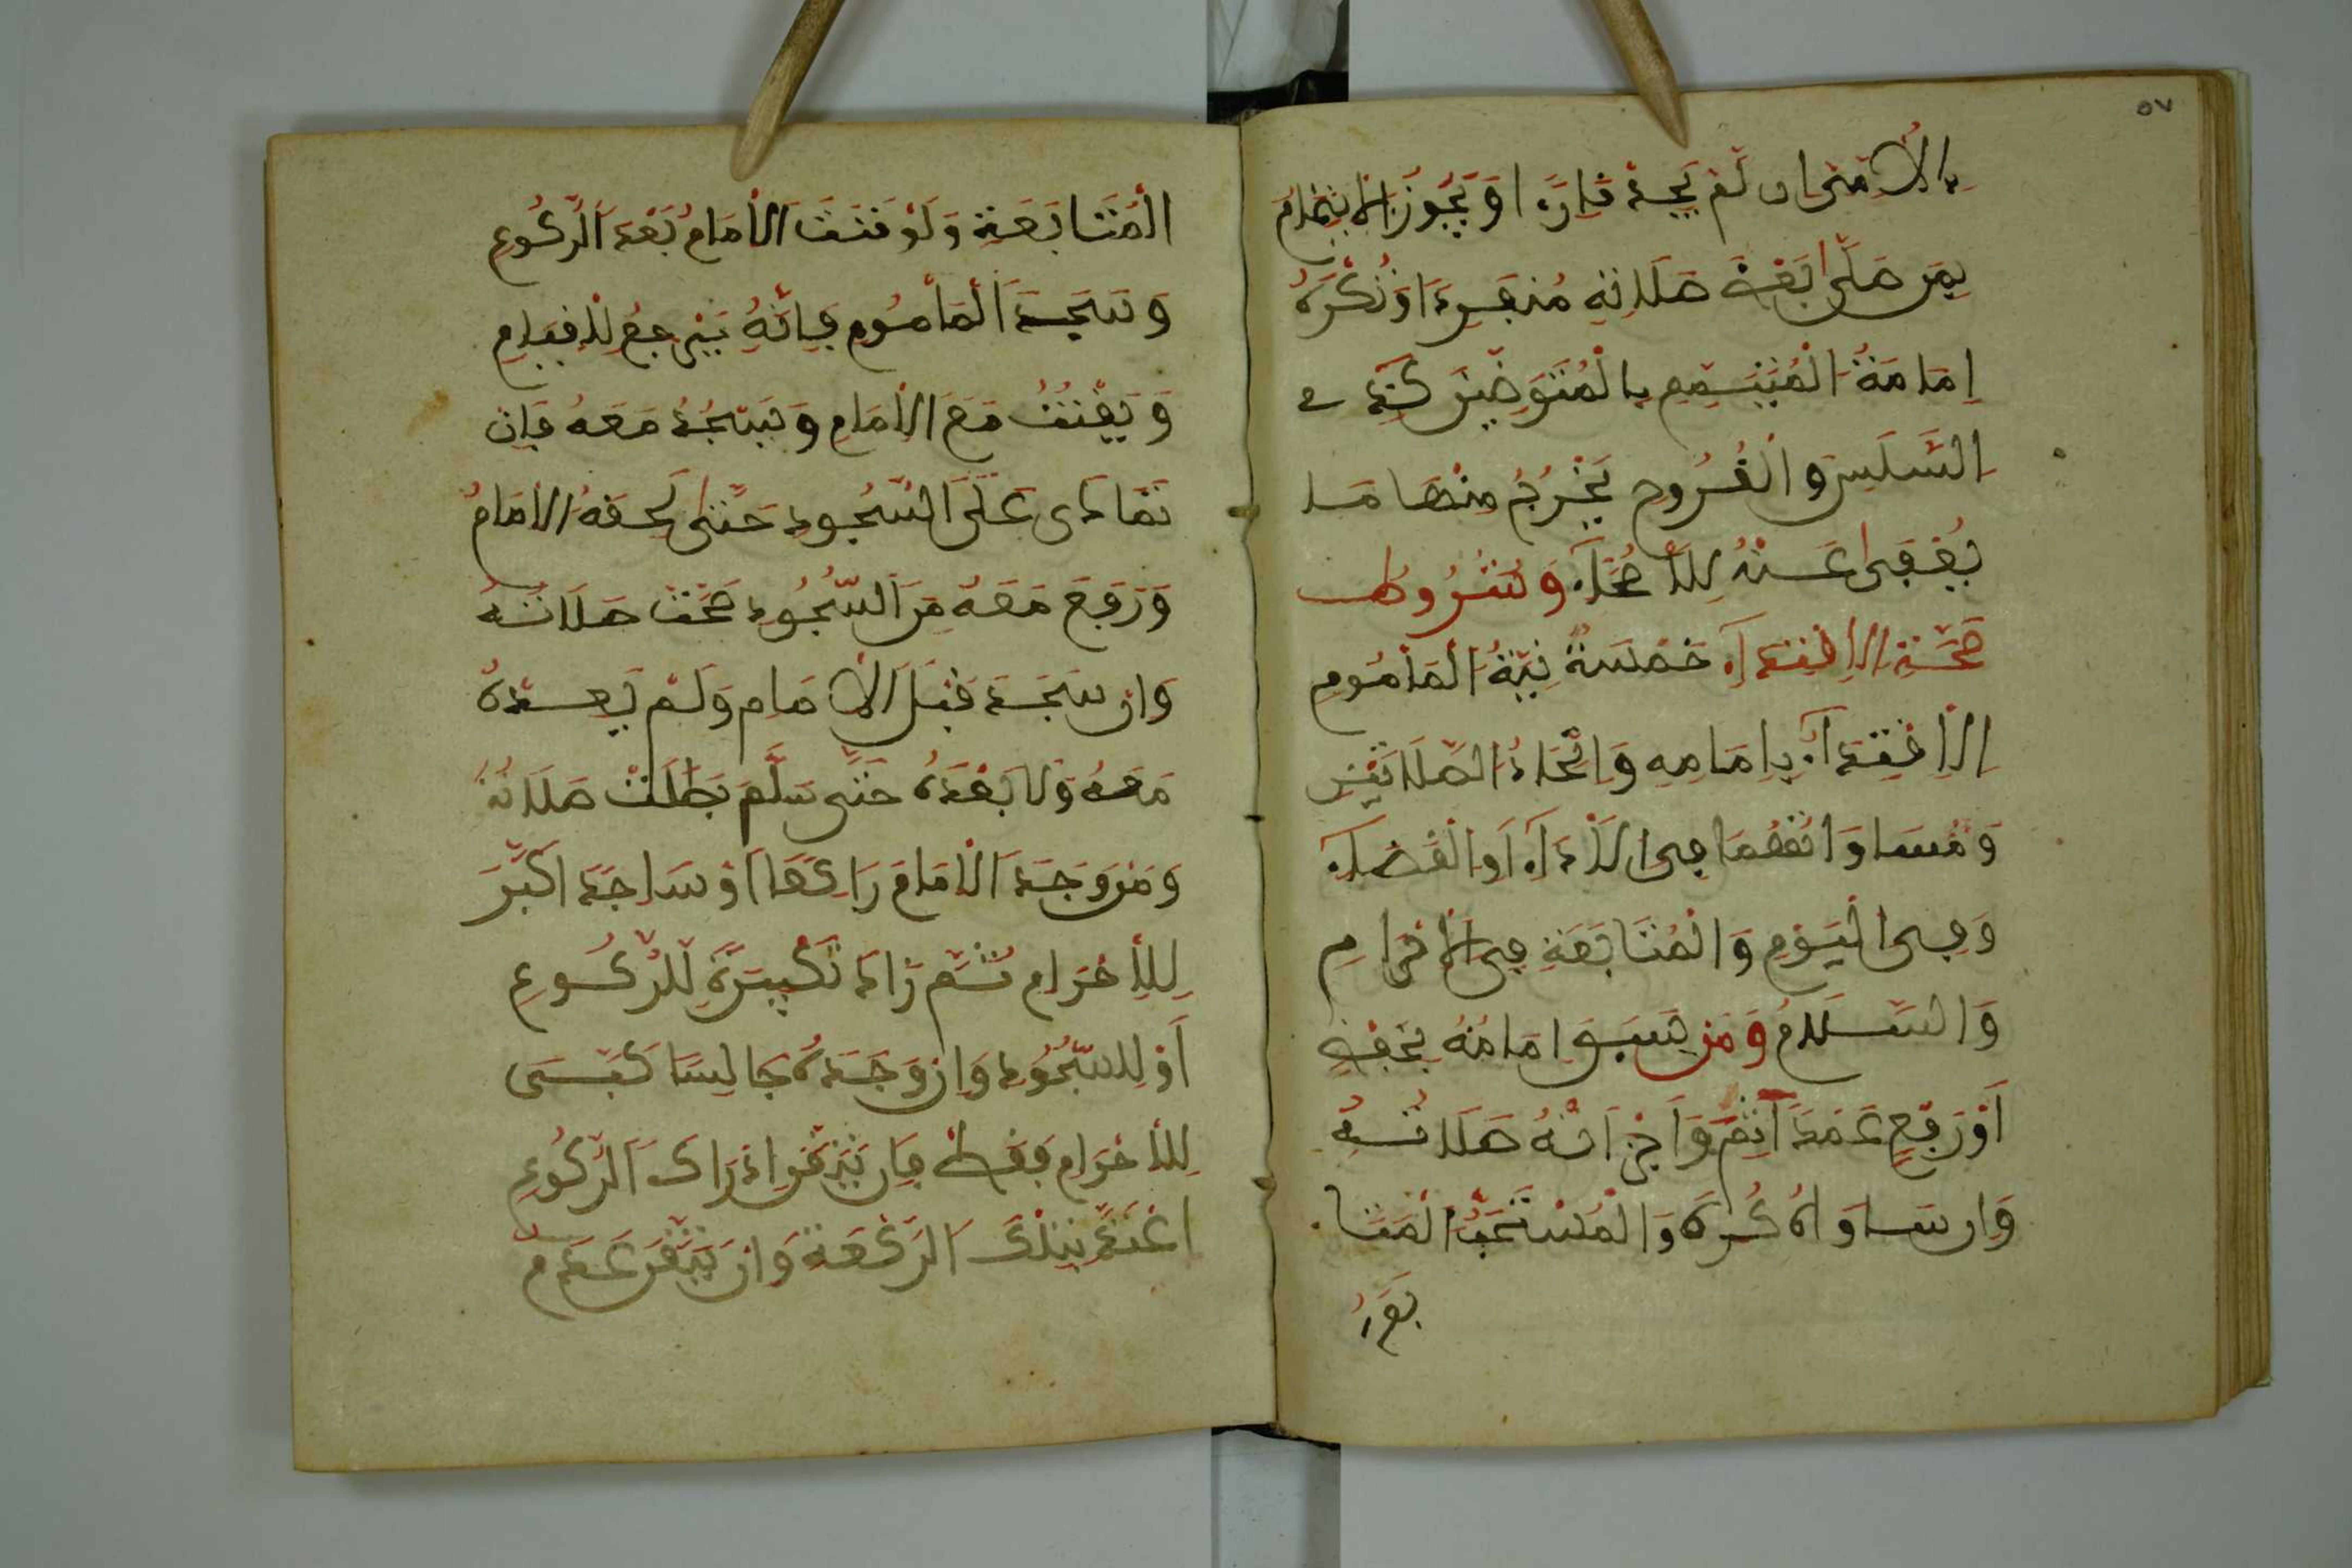 ٥٧
بِالْاِمْتِحَانِ لَمْ يَجِدْ قَارِءًا وَيَجُوزُ الْاِئْتِمَامُ
بِمَنْ صَلَّى بَعْضَ صَلَاتِهِ مُنْفَرِدًا وَتُكْرَهُ
اِمَامَةُ الْمُتَيَمِّمِ بِالْمُتَوَضِّئِينَ كَذِي
السَّلَسِ وَالْقُرُوحِ يَخْرُجُ مِنْهَا مَا
يُعْفَى عَنْهُ لِلْأَصِحَّاءِ وَشُرُوطُ
صِحَّةِ الْاِقْتِدَاءِ خَمْسَةٌ نِيَّةُ الْمَأْمُومِ
الْاِقْتِدَاءَ بِاِمَامِهِ وَاتِّحَادُ الصَّلَاتَيْنِ
وَمُسَاوَاتُهُمَا فِى الْأَدَاءِ أَوِ الْقَضَاءِ
وَفِى الْيَوْمِ وَالْمُتَابَعَةِ فِى الْاِحْرَامِ
وَالسَّلَامُ وَمَنْ سَبَقَ اِمَامَهُ بِخَفْضٍ
أَوْ رَفْعٍ عَمْدًا أَثِمَ وَأَجْزَأَتْهُ صَلَاتُهُ
وَاِنْ سَاوَاهُ كُرِهَ وَالْمُسْتَحَبُّ الْمُتَا
بَعَةُ
الْمُتَابَعَةِ وَلَوْ قَنَتَ الْاِمَامُ بَعْدَ الرُّكُوعِ
وَسَجَدَ الْمَأْمُومُ فَاِنَّهُ يَرْجِعُ لِلْقِيَامِ
وَيَقْنُتُ مَعَ الْاِمَامِ وَيَسْجُدُ مَعَهُ فَاِنْ
تَمَادَى عَلَى السُّجُودِ حَتَّى لَحِقَهُ الْاِمَامُ
وَرَفَعَ مَعَهُ مِنَ السُّجُودِ صَحَّتْ صَلَاتُهُ
وَاِنْ سَجَدَ قَبْلَ الْاِمَامِ وَلَمْ يُعِدْهُ
مَعَهُ وَلَا بَعْدَهُ حَتَّى سَلَّمَ بَطَلَتْ صَلَاتُهُ
وَمَنْ وَجَدَ الْاِمَامَ رَاكِعًا أَوْ سَاجِدًا كَبَّرَ
لِلْاِحْرَامِ ثُمَّ زَادَ تَكْبِيرَةً لِلرُّكُوعِ
أَوْ لِلسُّجُودِ وَاِنْ وَجَدَهُ جَالِسًا كَبَّرَ
لِلْاِحْرَامِ فَقَطْ فَاِنْ تَيَقَّنَ اِدْرَاكَ الرُّكُوعِ
اعْتَدَّ بِتِلْكَ الرَّكْعَةِ وَاِنْ تَيَقَّنَ عَدَمَ